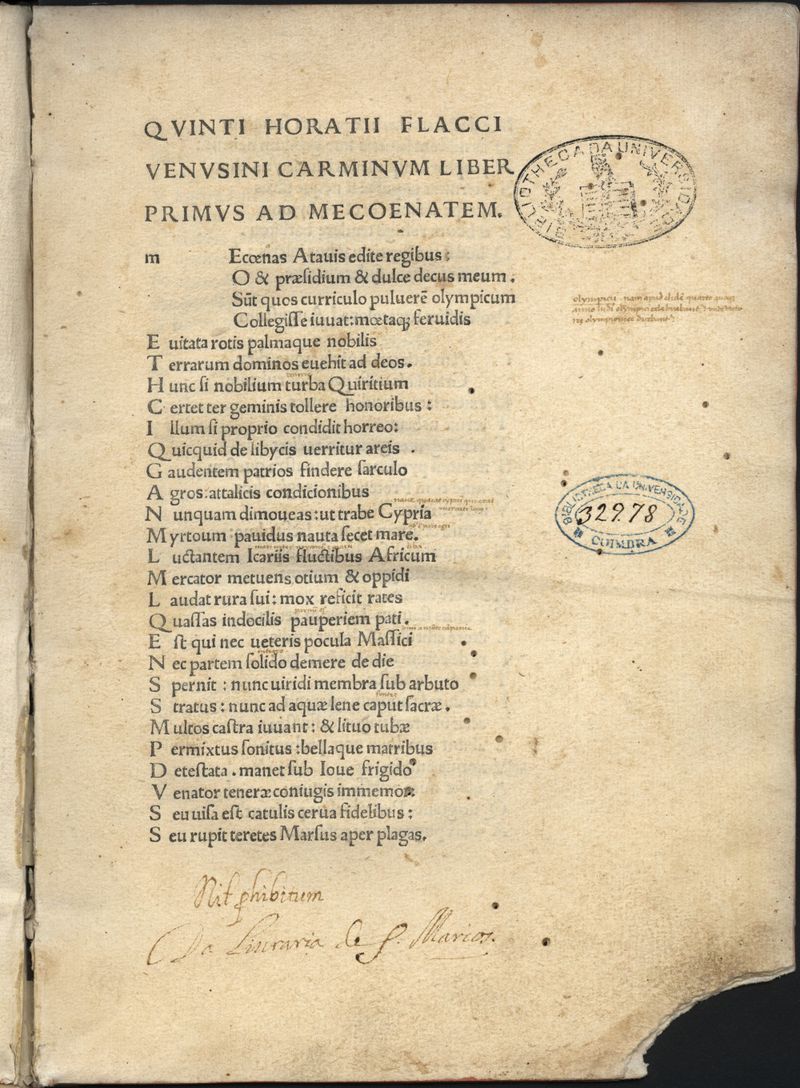 QVINTI HORATII FLACCI
VENVSINI CARMINVM LIBER
PRIMVS AD MECOENATEM.
BIBLIOTHECA DA UNIVERSIDADE
m Ecœnas Atauis edite regibus:
O & præsidium & dulce decus meum.
Sũt quos curriculo puluerẽ olympicum
Collegiſſe iuuat: mœtaqꝫ feruidis
E uitata rotis palmaque nobilis
T errarum dominos euehit ad deos.
H unc ſi nobilium turba Quiritium
C ertet ter geminis tollere honoribus:
I llum ſi proprio condidit horreo:
Q uicquid de libycis uerritur areis .
G audentem patrios findere ſarculo
A gros: attalicis condicionibus
N unquam dimoueas: ut trabe Cypria
M yrtoum pauidus nauta ſecet mare.
L uctantem Icariis fluctibus Africum
M ercator metuens otium & oppidi
L audat rura ſui: mox reficit rates
Q uaſſas indocilis pauperiem pati.
E ſt qui nec ueteris pocula Maſſici
N ec partem ſolido demere de die
S pernit: nunc uiridi membra ſub arbuto
S tratus: nunc ad aquæ lene caput ſacræ.
M ultos caſtra iuuant: & lituo tubæ
P ermixtus ſonitus: bellaque matribus
D eteſtata. manet ſub Ioue frigido
V enator teneræ coniugis immemor:
S eu uiſa eſt catulis cerua fidelibus:
S eu rupit teretes Marſus aper plagas.
BIBLIOTHECA DA UNIVERSIDADE
32978
COIMBRA
Nil ꝓhibitum
Da Liuraria de S. Marcos.